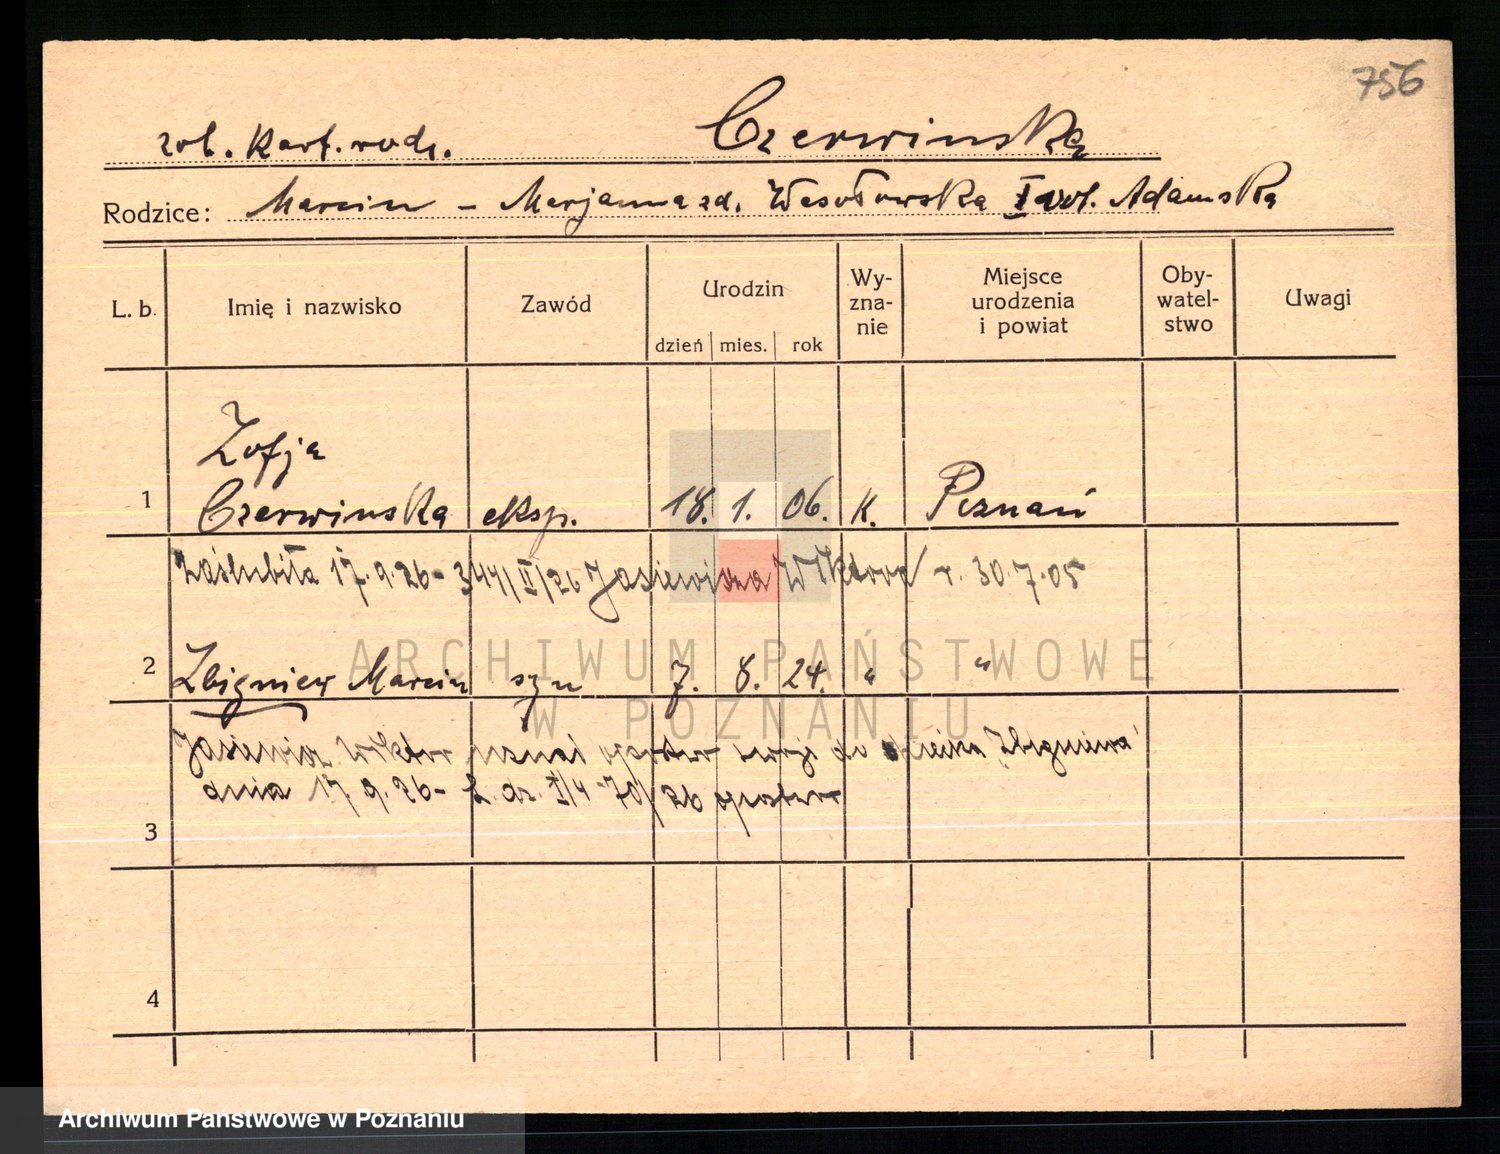 756
zob. Kart. rodz. Czerwinska
Rodzice: Marcin - Marjanna zd. Wesołowska I vol. Adamska
L. b. Imię i nazwisko Zawód Urodzin dzień mies. rok Wy-zna-nie Miejsce urodzenia i powiat Oby-watel-stwo Uwagi
Zofja
1 Czerwinska eksp. 18. 1. 06. K. Poznań
zaślubiła 17.9.26 - 344/II/26 Jasiewicza Wiktora r. 30.7.05
2 Zbigniew Marcin syn 7. 8. 24. " "
ARCHIWUM PAŃSTWOWE
W POZNANIU
Jasiewicz Wiktor uznał ojcostwo swoje do dziecka "Zbigniewa"
dnia 17.9.26 - L. dz. I/4 - 70/26
3
4
Archiwum Państwowe w Poznaniu